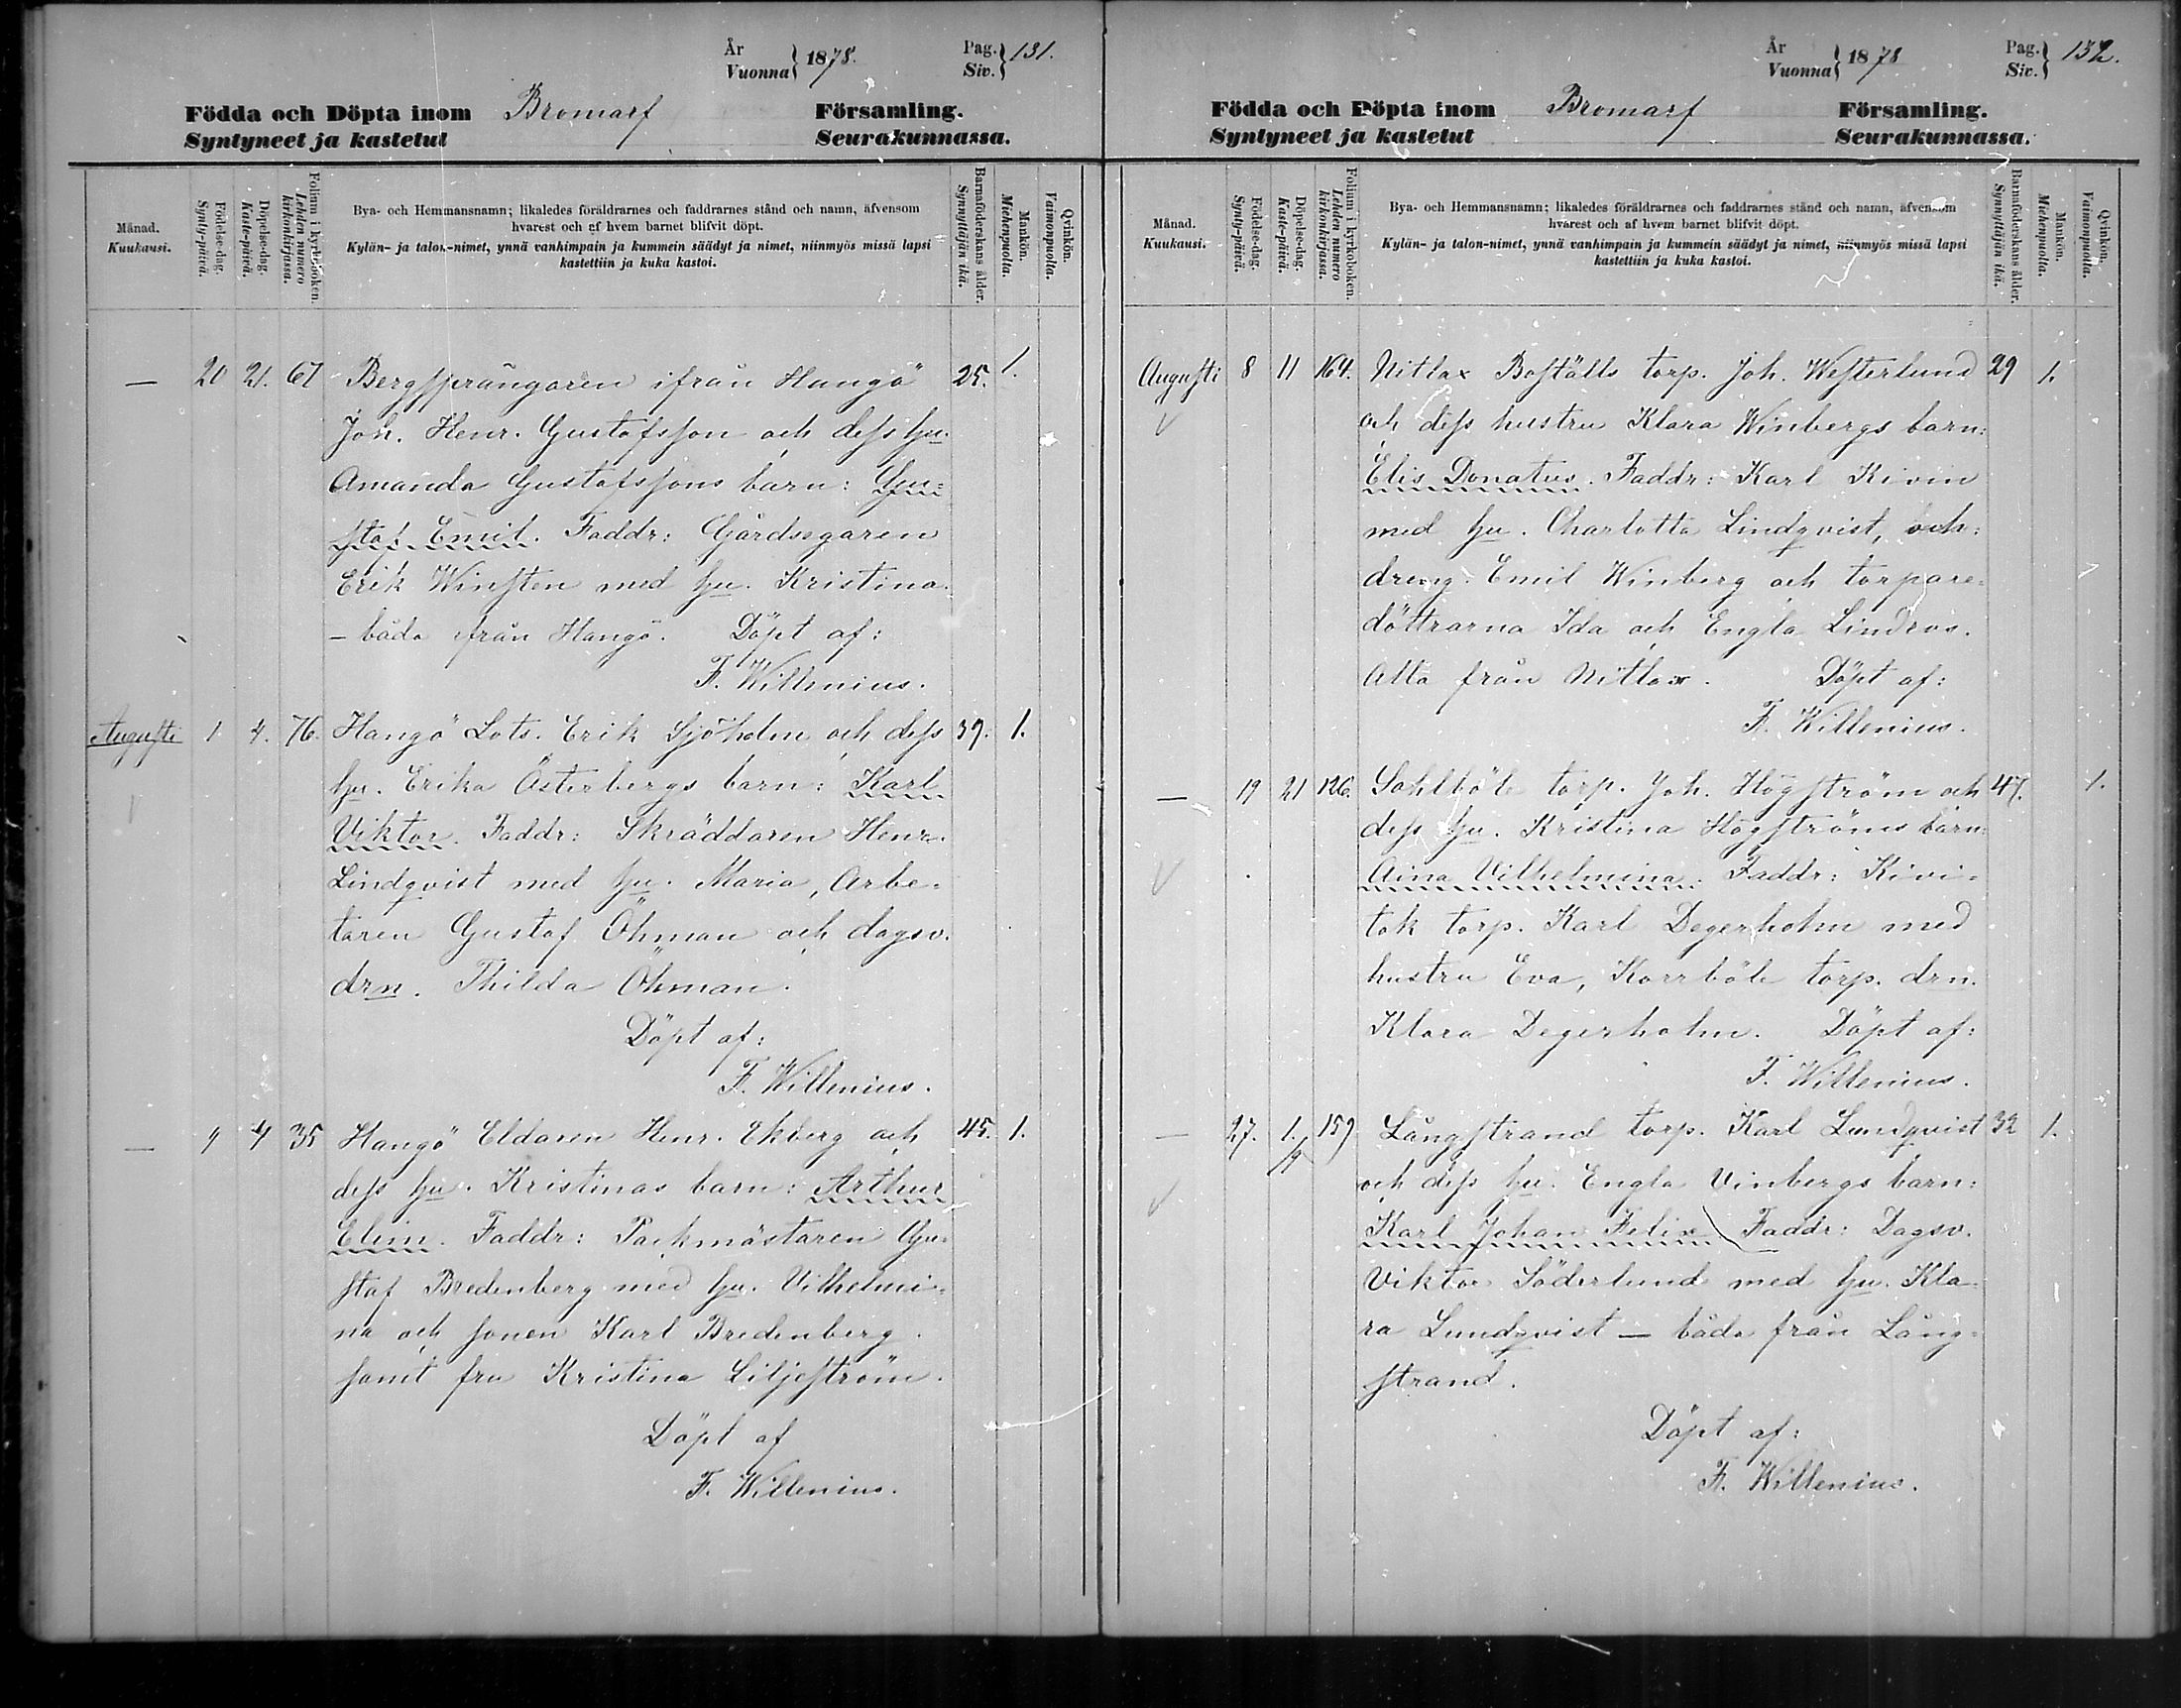 År
Vuonna } 1878.
Pag.
Siv. } 131.
Födda och Döpta inom Bromarf Församling.
Syntyneet ja kastetut Seurakunnassa.
Månad.
Kuukausi.
Födelse-dag.
Synty-päivä.
Döpelse-dag.
Kaste-päivä.
Folium i kyrkoboken.
Lehden numero
kirkonkirjassa.
Bya- och Hemmansnamn; likaledes föräldrarnes och faddrarnes stånd och namn, äfvensom
hvarest och af hvem barnet blifvit döpt.
Kylän- ja talon-nimet, ynnä vanhimpain ja kummein säädyt ja nimet, niinmyös missä lapsi
kastettiin ja kuka kastoi.
Barnaföderskans ålder.
Synnyttäjän ikä.
Mankön.
Miehenpuolta.
Qvinkön.
Vaimonpuolta.
— 20 21. 67 Bergsprängaren ifrån Hangö 25. 1.
Joh. Henr. Gustafsson och dess hu.
Amanda Gustafssons barn: Gu=
staf Emil. Faddr: Gårdsegaren
Erik Winsten med hu. Kristina
— båda från Hangö. Döpt af:
F. Willenius.
Augusti 1 4. 76. Hangö Lots. Erik Sjöholm och dess 39. 1.
hu. Erika Österbergs barn: Karl
Viktor. Faddr: Skräddaren Henr.
Lindqvist med hu. Maria, Arbe-
taren Gustaf Öhman och dagsv.
drn. Thilda Öhman.
Döpt af:
F. Willenius.
— 1 4 35 Hangö Eldaren Henr. Ekberg och 45. 1.
dess hu. Kristinas barn: Arthur
Elim. Faddr: Packmästaren Gu-
staf Bredenberg med hu. Vilhelmi-
na och sonen Karl Bredenberg
samt fru Kristina Liljeström.
Döpt af
F. Willenius.
År
Vuonna } 1878
Pag.
Siv. } 132.
Födda och Döpta inom Bromarf Församling.
Syntyneet ja kastetut Seurakunnassa.
Månad.
Kuukausi.
Födelse-dag.
Synty-päivä.
Döpelse-dag.
Kaste-päivä.
Folium i kyrkoboken.
Lehden numero
kirkonkirjassa.
Bya- och Hemmansnamn; likaledes föräldrarnes och faddrarnes stånd och namn, äfvensom
hvarest och af hvem barnet blifvit döpt.
Kylän- ja talon-nimet, ynnä vanhimpain ja kummein säädyt ja nimet, niinmyös missä lapsi
kastettiin ja kuka kastoi.
Barnaföderskans ålder.
Synnyttäjän ikä.
Mankön.
Miehenpuolta.
Qvinkön.
Vaimonpuolta.
Augusti 8 11 164. Nitlax Boställs torp. Joh. Westerlund 29 1.
och dess hustru Klara Winbergs barn:
Elis Donatus. Faddr: Karl Kivin
med hu. Charlotta Lindqvist,
dreng. Emil Winberg och torpare-
döttrarna Ida och Engla Lindros.
Alla från Nitlax. Döpt af:
F. Willenius.
— 19 21 126. Sahlböle torp. Joh. Högström och 47. 1.
dess hu. Kristina Högströms barn:
Aina Vilhelmina. Faddr: Kivi-
tok torp. Karl Degerholm med
hustru Eva, Korrböle torp. drn.
Klara Degerholm. Döpt af:
F. Willenius.
— 27. 1./9 159 Långstrand torp. Karl Lundqvist 32 1.
och dess hu. Engla Vinbergs barn:
Karl Johan Felix Faddr: Dagsv.
Viktor Söderlund med hu. Kla-
ra Lundqvist — båda från Lång-
strand.
Döpt af:
F. Willenius.